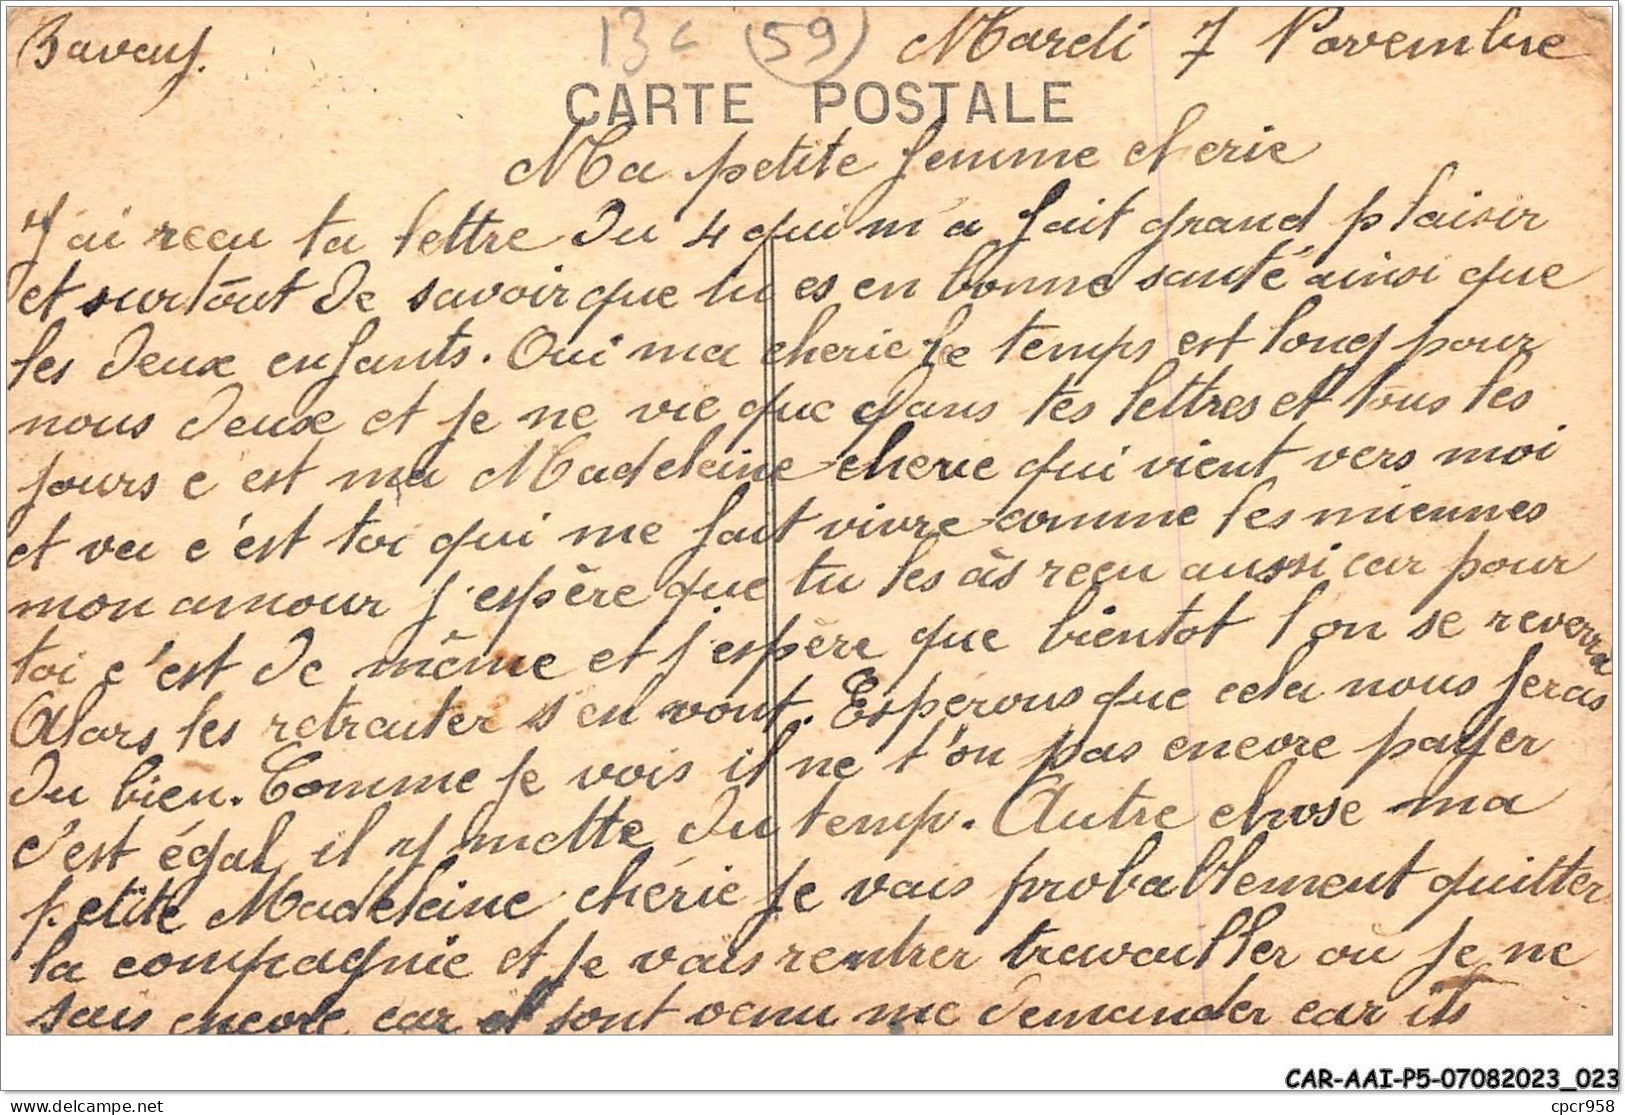 13 c (59)
Mardi 7 Novembre
CARTE POSTALE
Ma petite femme cherie
J'ai recu ta lettre du 4 qui m'a fait grand plaisir
et surtout de savoir que tu es en bonne santé ainsi que
les deux enfants. Oui ma cherie le temps est long pour
nous deux et je ne vie que dans tes lettres et tous les
jours c est ma Madeleine cherie qui vient vers moi
et va c'est toi qui me fait vivre comme les miennes
mon amour j'espère que tu les às recu aussi car pour
toi c'est de même et j'espère que bientot l'on se reverra
Alors les retraiter s'en vont. Esperons que cela nous feras
du bien. Comme je vois il ne t'on pas encore payer
c'est égal il y mette du temp. Autre chose ma
petite Madeleine chérie je vais probablement quitter
la compagnie et je vais rentrer travailler ou je ne
sais encore car sont venu me demander car ils
CAR-AAI-P5-07082023_023
cpcr958
www.delcampe.net